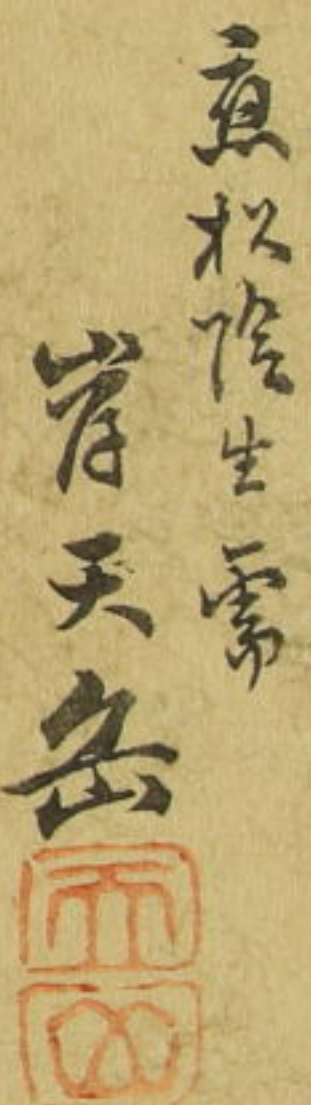 應松陰生需
岸天岳
天
岳